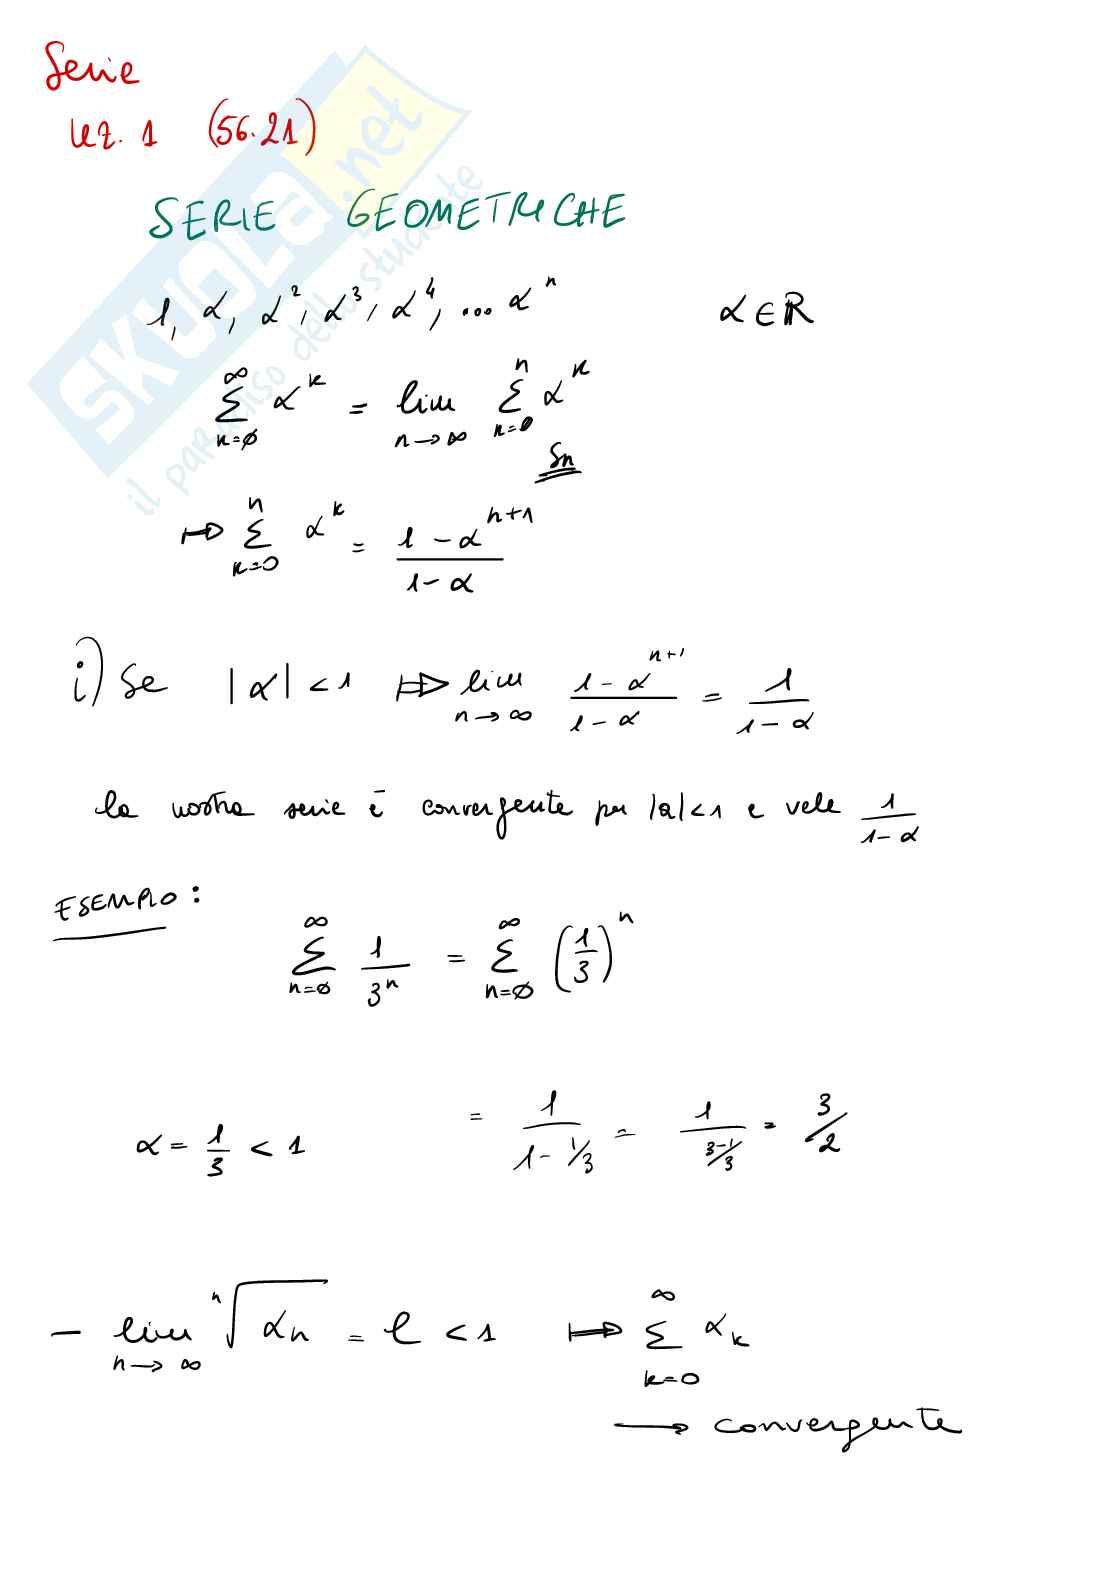 Serie
lez. 1 (56.21)
SERIE GEOMETRICHE
1, α, α², α³, α⁴, ... αⁿ α ∈ ℝ
∑_{k=0}^{∞} α^k = lim_{n→∞} ∑_{k=0}^{n} α^k
Sn
↦ ∑_{k=0}^{n} α^k = (1 - α^{n+1})/(1 - α)
i) Se |α| < 1 ⇒ lim_{n→∞} (1 - α^{n+1})/(1 - α) = 1/(1 - α)
la nostra serie è convergente per |a|<1 e vale 1/(1 - α)
ESEMPIO:
∑_{n=0}^{∞} 1/3^n = ∑_{n=0}^{∞} (1/3)^n
α = 1/3 < 1 = 1/(1 - 1/3) = 1/((3-1)/3) = 3/2
- lim_{n→∞} ⁿ√αn = l < 1 ↦ ∑_{k=0}^{∞} αk
→ convergente
SKUOLA.net
il paradiso dello studente